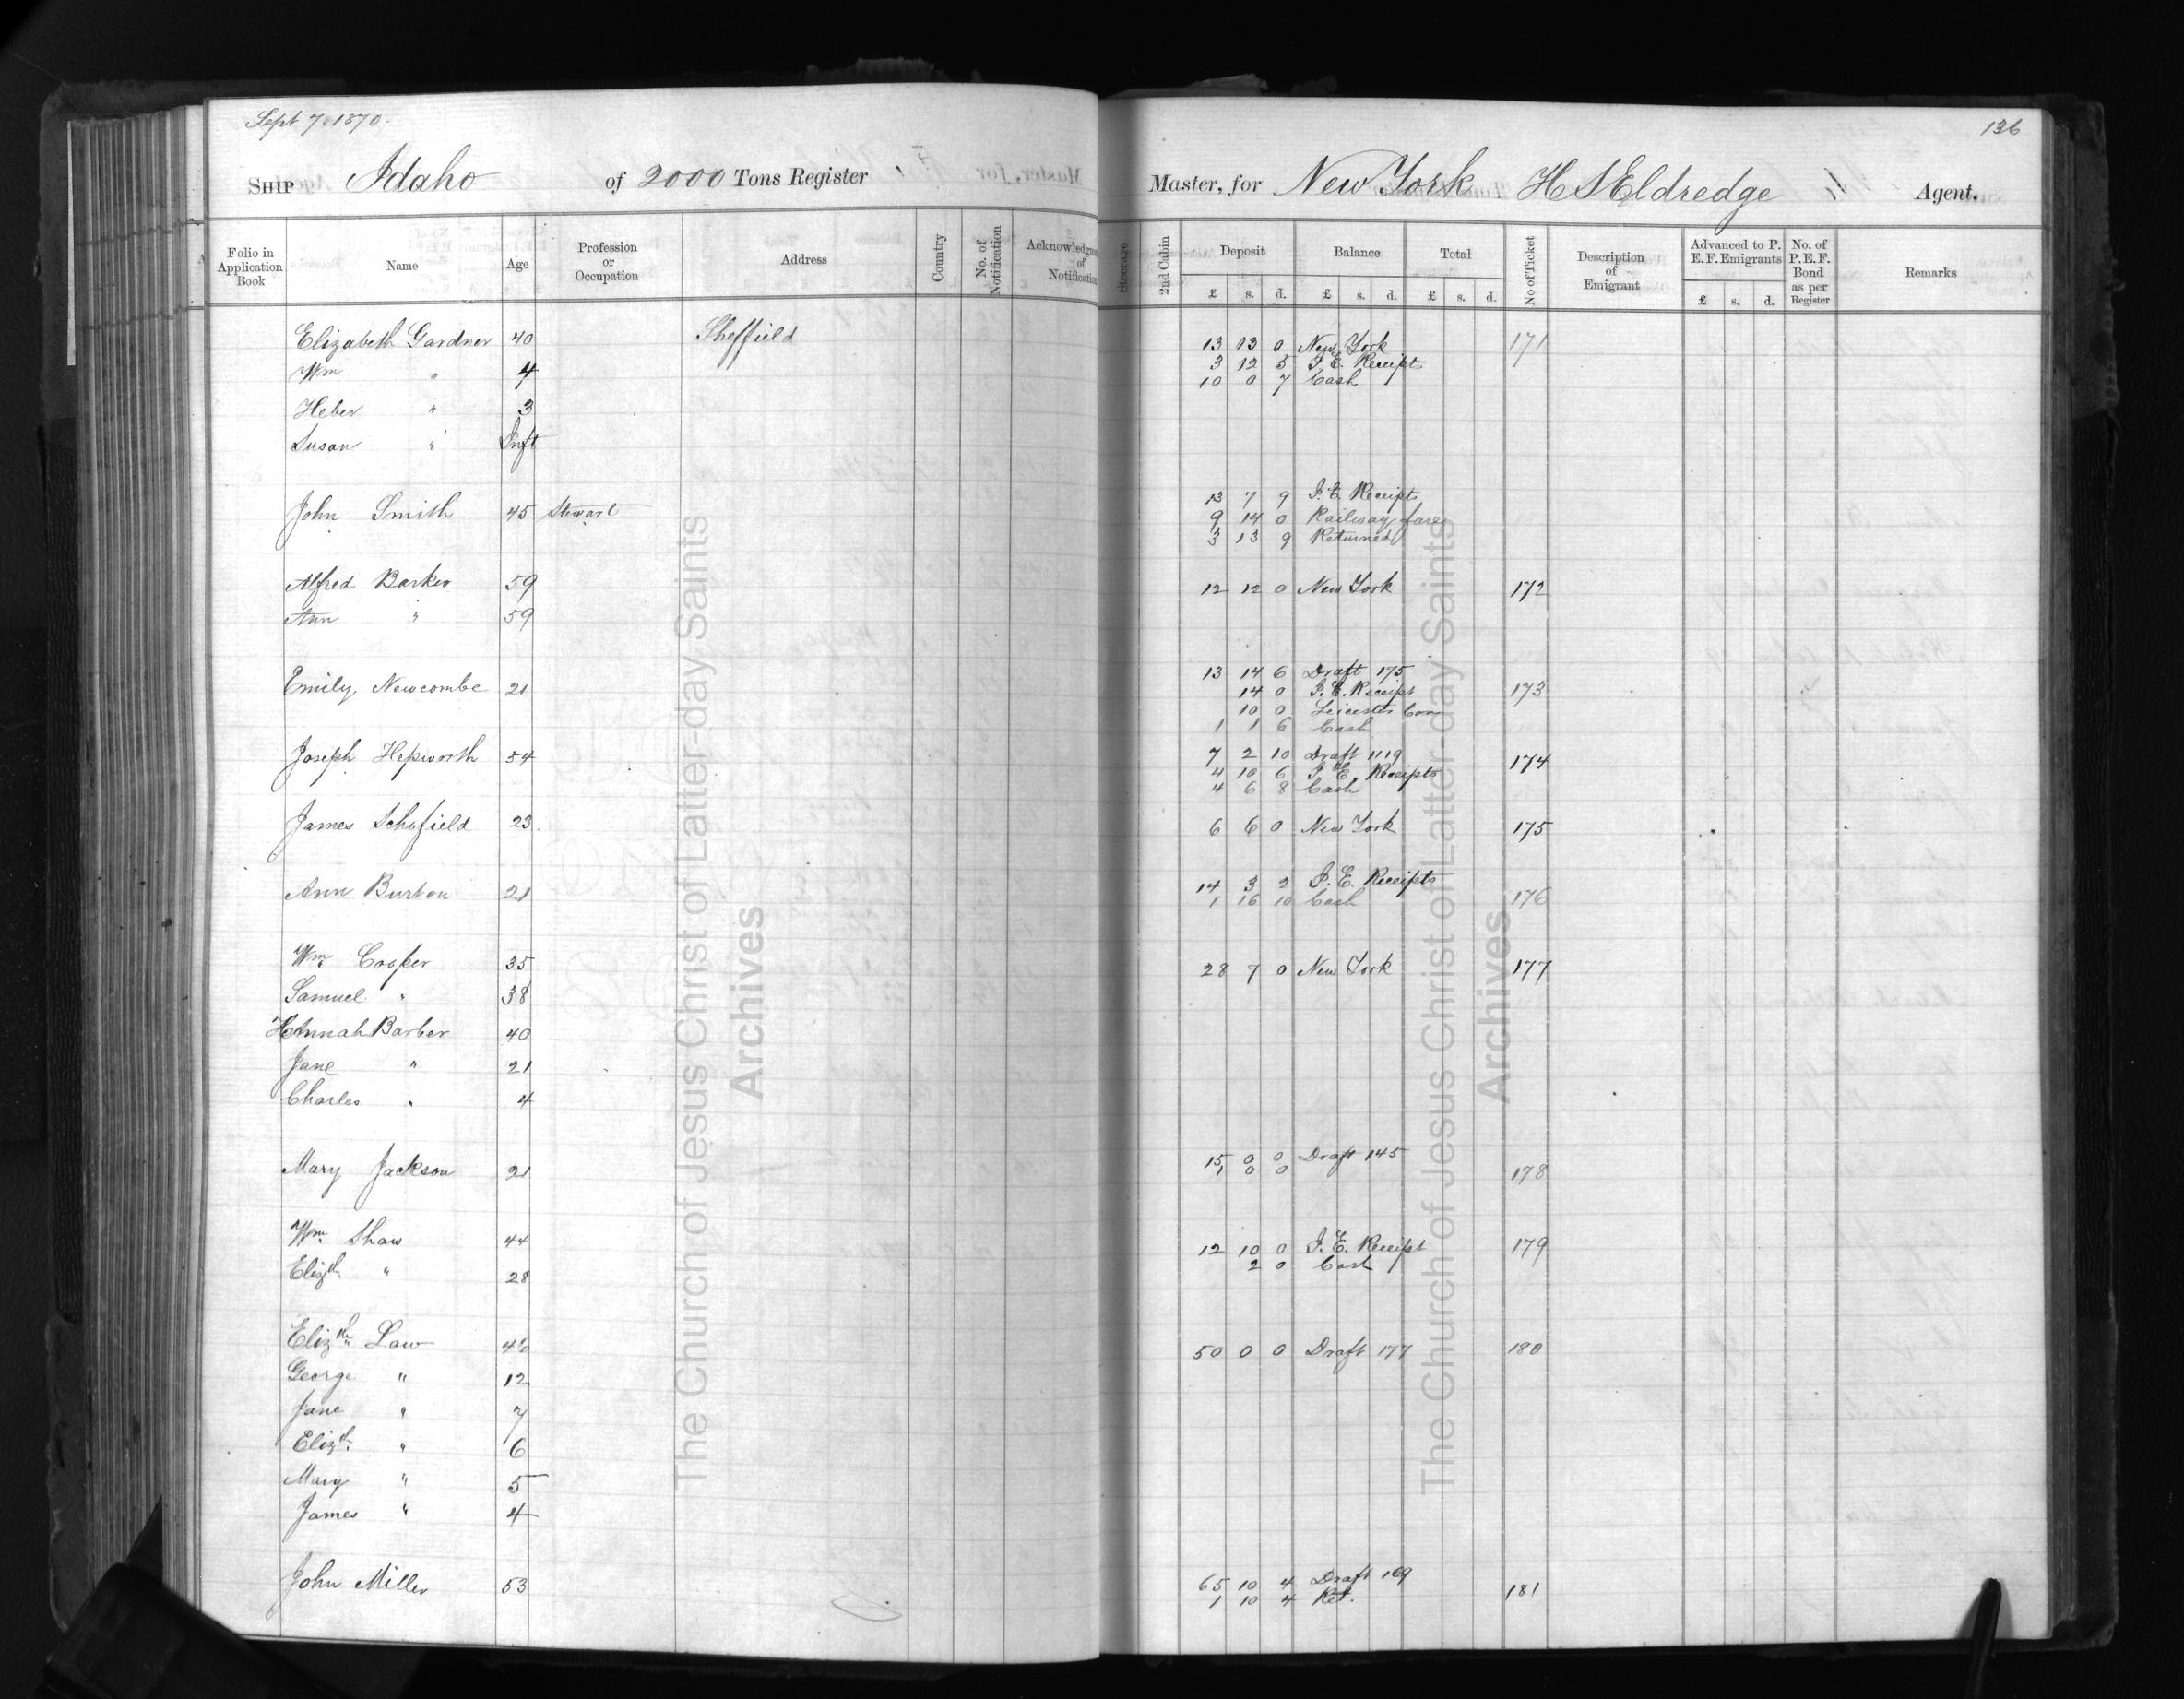 Sept 7. 1870.
136
Ship Idaho of 2000 Tons Register Master, for New York H S Eldredge Agent.
Folio in Application Book Name Age Profession or Occupation Address Country No. of Notification Acknowledgme of Notification Steerage 2nd Cabin Deposit Balance Total No of Ticket Description of Emigrant Advanced to P. E. F. Emigrants No. of P. E. F. Bond as per Register Remarks
£ s. d. £ s. d. £ s. d. £ s. d.
Elizabeth Gardner 40 Sheffield 13 13 0 New York 171
Wm " 4 3 12 5 I. E. Receipt
10 0 7 Cash
Heber " 3
Susan " Inft
13 7 9 I. E. Receipts
John Smith 45 Stewart 9 14 0 Railway fare
3 13 9 Returned
Alfred Barker 59 12 12 0 New York 172
Ann " 59
13 14 6 Draft 175
Emily Newcombe 21 14 0 I. E. Receipt 173
10 0 Leicester Con
1 1 6 Cash
Joseph Hepworth 54 7 2 10 Draft 1119 174
4 10 6 I. E. Receipts
4 6 8 Cash
James Schofield 23 6 6 0 New York 175
14 3 2 I. E. Receipts
Ann Burton 21 1 16 10 Cash 176
Wm Cooper 35 28 7 0 New York 177
Samuel " 38
Hannah Barber 40
Jane " 21
Charles " 4
15 0 0 Draft 145
Mary Jackson 21 1 0 0 178
Wm Shaw 44 12 10 0 I. E. Receipt 179
Elizth " 28 2 0 Cash
Elizth Law 46 50 0 0 Draft 177 180
George " 12
Jane " 7
Elizth " 6
Mary " 5
James " 4
65 10 4 Draft 169
John Miller 53 1 10 4 Ret. 181
The Church of Jesus Christ of Latter-day Saints
Archives
The Church of Jesus Christ of Latter-day Saints
Archives